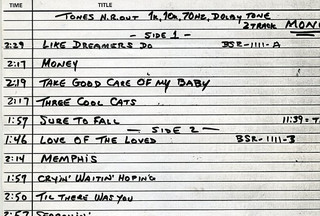 TIME TITLE
TONES N.R. OUT 1K, 10K, 70HZ, DOLBY TONE
2 TRACK MON
— SIDE 1 —
2:29 LIKE DREAMERS DO BSR-1111-A
2:17 MONEY
2:19 TAKE GOOD CARE OF MY BABY
2:17 THREE COOL CATS
1:57 SURE TO FALL 11:39 = T
— SIDE 2 —
1:46 LOVE OF THE LOVED BSR-1111-B
2:14 MEMPHIS
1:57 CRYIN' WAITIN' HOPING
2:50 TIL THERE WAS YOU
2:57 SEARCHIN'